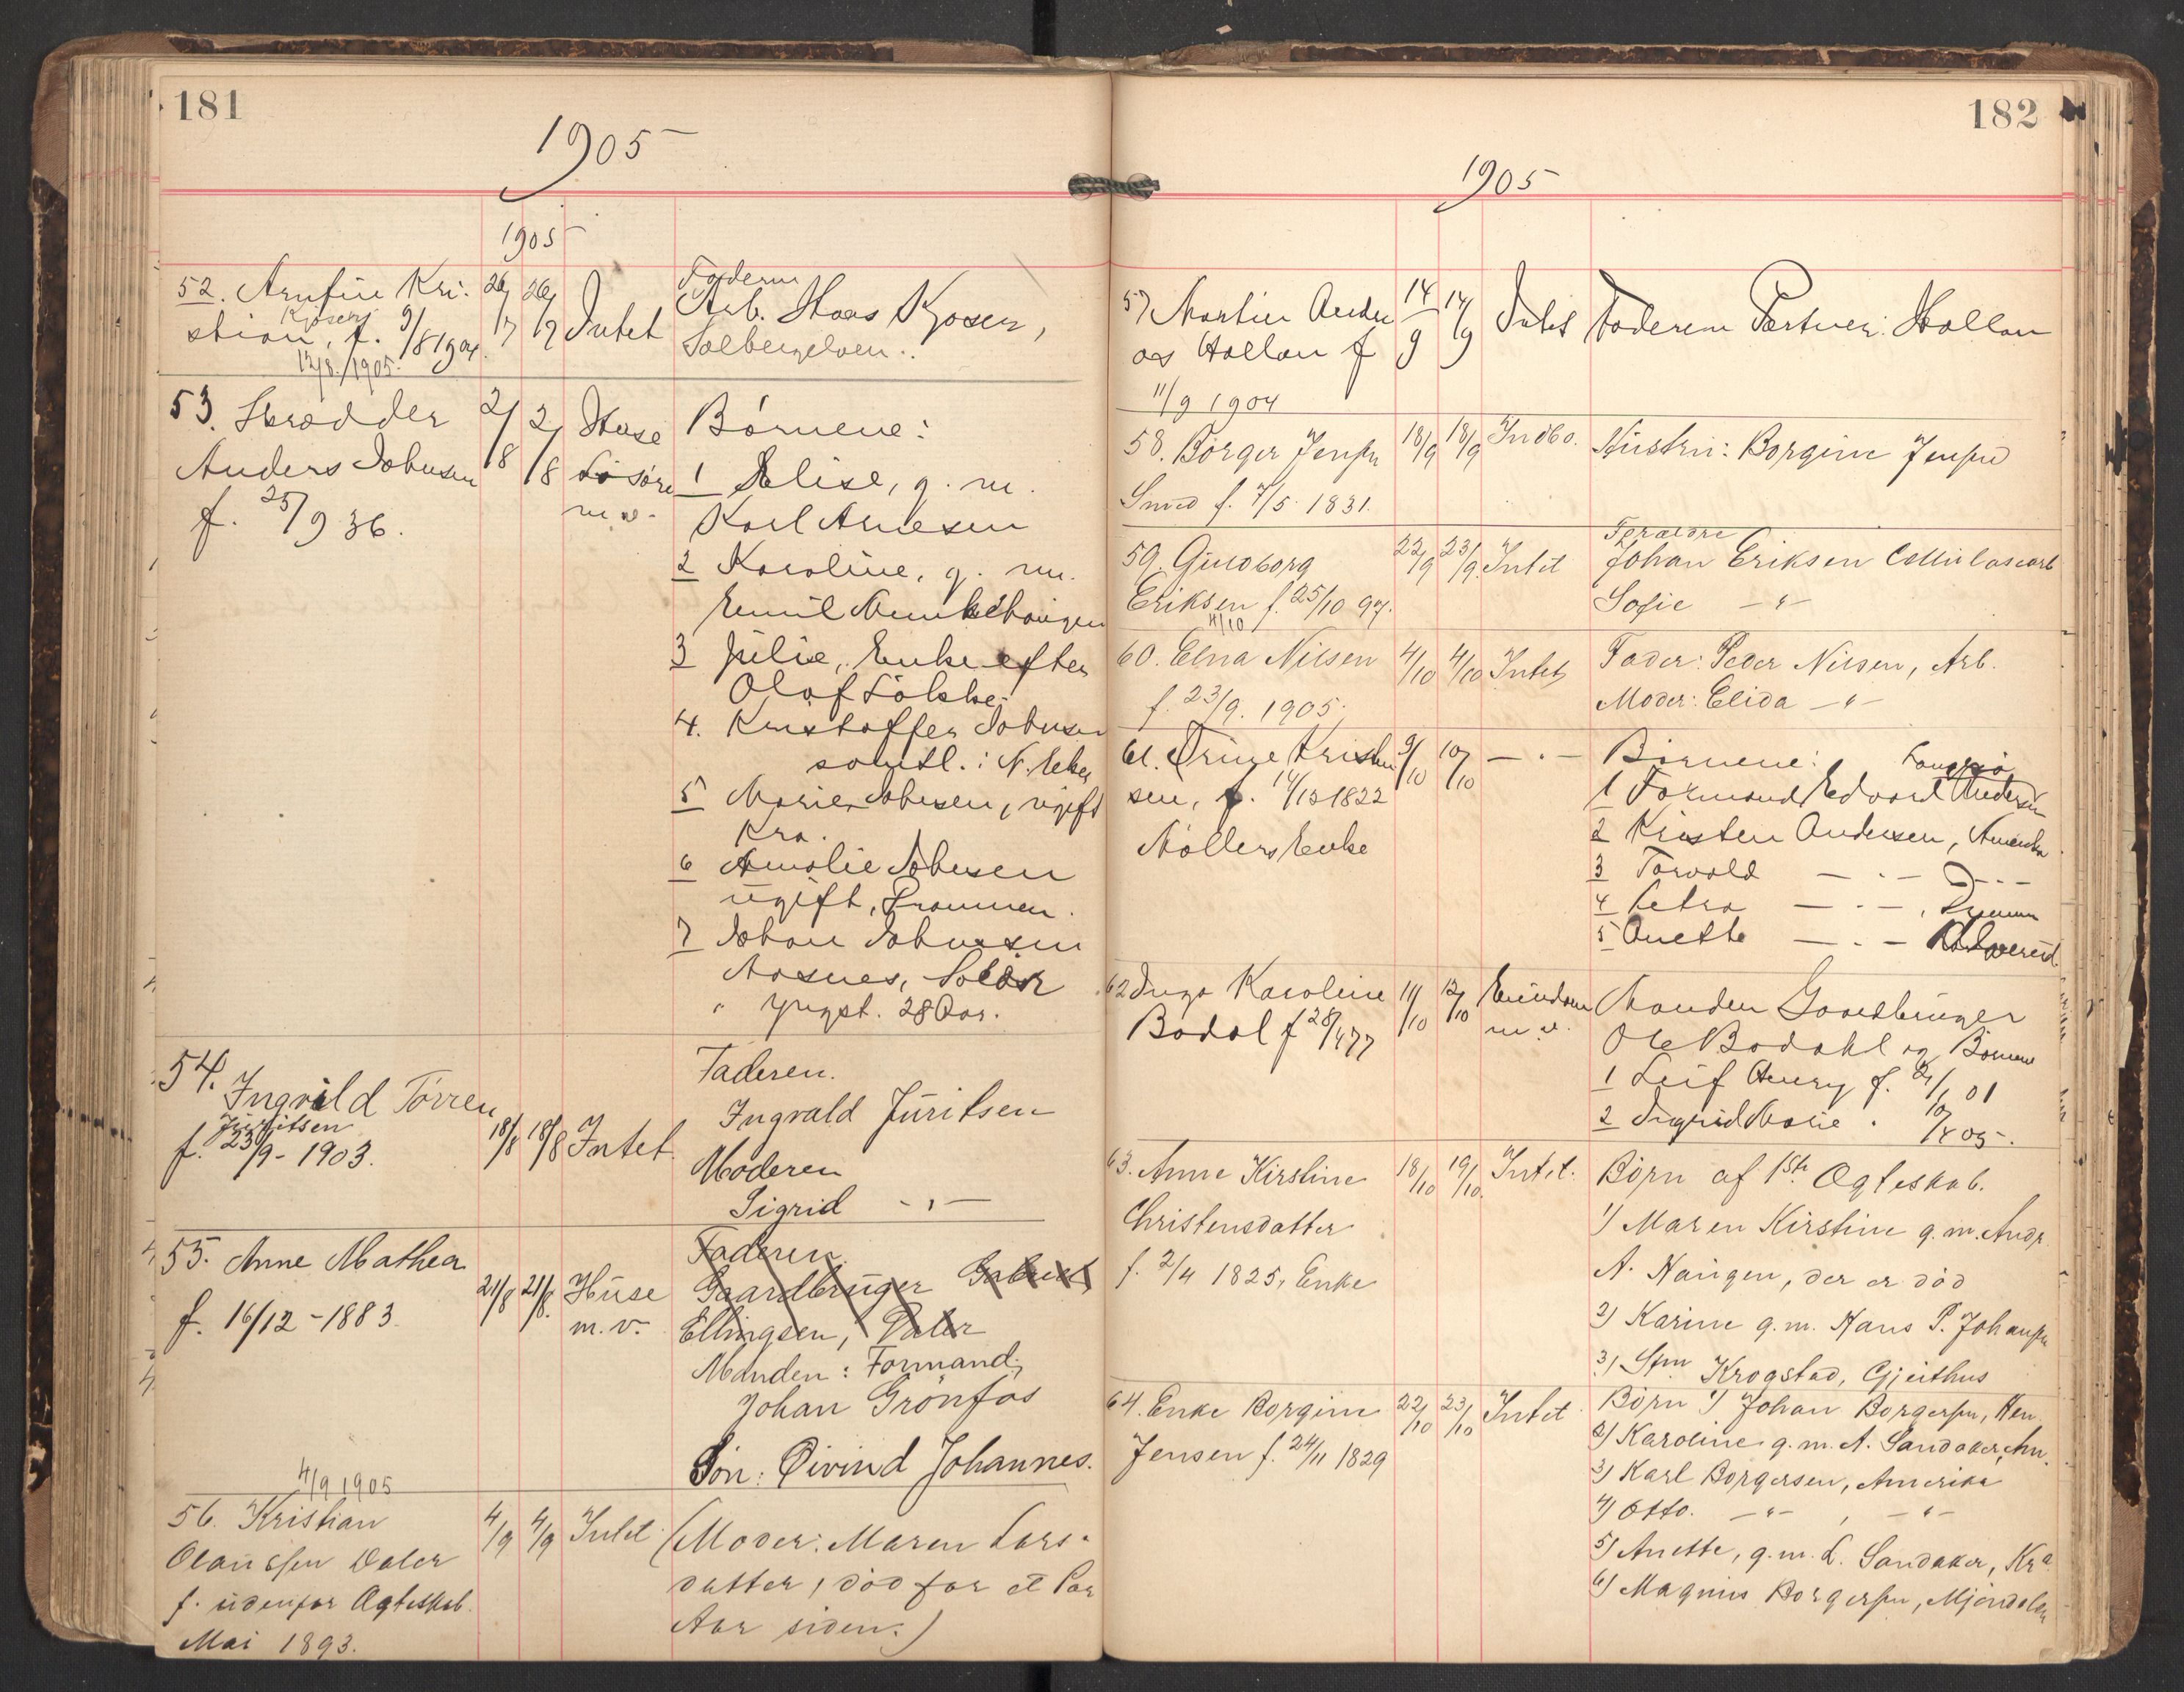 181
1905
1905
52. Arnfin Kri-
stian, f. 9/8 1904
Kjøsen
12/8 1905.
26/7 26/7 Intet
Faderen
Arb. Haas Kjøsen,
Solbergelven..
53. Skrædder
Anders Johnsen
f. 25/9 36.
2/8 2/8 Huse
Løsøre
m v.
Børnene:
1 Elise, g. m.
Karl Arnesen
2 Karoline, g. m.
Emil
3 Julie, Enke efter
Olaf
4. Kristoffer Johnsen
samtl. i N. Eker
5 Marie Johnsen, ugift
Kra.
6 Amalie Johnsen
ugift, Drammen.
7 Johan Johnsen
Aasnes, Solør
" yngst. 28 Aar.
54.
Ingvild Torren
Juritsen
f. 23/9 - 1903.
18/8 18/8 Intet
Faderen.
Ingvald Juritsen
Moderen
Sigrid -"-
55. Anne Mathea
f. 16/12 - 1883.
21/8 21/8. Huse
m. v.
Faderen
Gaardbruger Gabriel
Ellingsen, Daler
Manden: Formand,
Johan Grønfos
Søn: Øivind Johannes.
4/9 1905
56. Kristian
Olaussen Daler
f. udenfor Ægteskab.
Mai 1893.
4/9 4/9 Intet
(Moder: Maren Lars-
datter, død for et Par
Aar siden.)
182
1905
57 Martin Andre
as Hollan f
11/9 1904
14/9 14/9 Intet
Faderen Portner: Hollan
58. Børger Jensen
Smed f. 7/5. 1831.
18/9 18/9 Indbo.
Hustru: Borgine Jensen
59. Gudborg
Eriksen f. 25/10 97.
22/9 23/9. Intet
Forældre
Johan Eriksen Cellulosearb
Sofie -"-
4/10
60. Elna Nilsen
f. 23/9. 1905.
4/10 4/10 Intet
Fader: Peder Nilsen, Arb.
Moder: Elida -"-
61. Trine Kristen
sen, f. 14/12 1822
Møllers Enke
9/10 10/10 - " -
Børnene:
1 Formand Edvard Andersen
2 Kristen Andersen, Amerika
3 Torvald - " - D - " -
4 Petra - " - ,
5 Anette - " -
62 Inga Karoline
Bodal f 28/4 77
11/10 12/10 Eiendom
m v.
Manden Gaardbruger
Ole Bodahl og Børnene
1 Leif Henry f. 21/1 01
2 Ingrid Marie " 10/4 05.
63. Anne Kirstine
Christensdatter
f. 2/4 1825, Enke
18/10 19/10. Intet.
Børn af 1ste Ægteskab.
1) Maren Kirstine g. m. Andr.
A. Haugen, der er død
2) Karine g. m. Hans P. Johansen
3) Krogstad, Gjeithus
64. Enke Borgine
Jensen f. 24/11 1829
22/10 23/10 Intet
Børn 1) Johan Borgersen, Hen
2) Karoline g. m. A. Sandaker, Am.
3) Karl Borgersen, Amerika
4) Otto. -"- , -"-
5) Anette, g. m. L. Sandaker, Kra
6) Magnus Borgersen, Mjøndalen